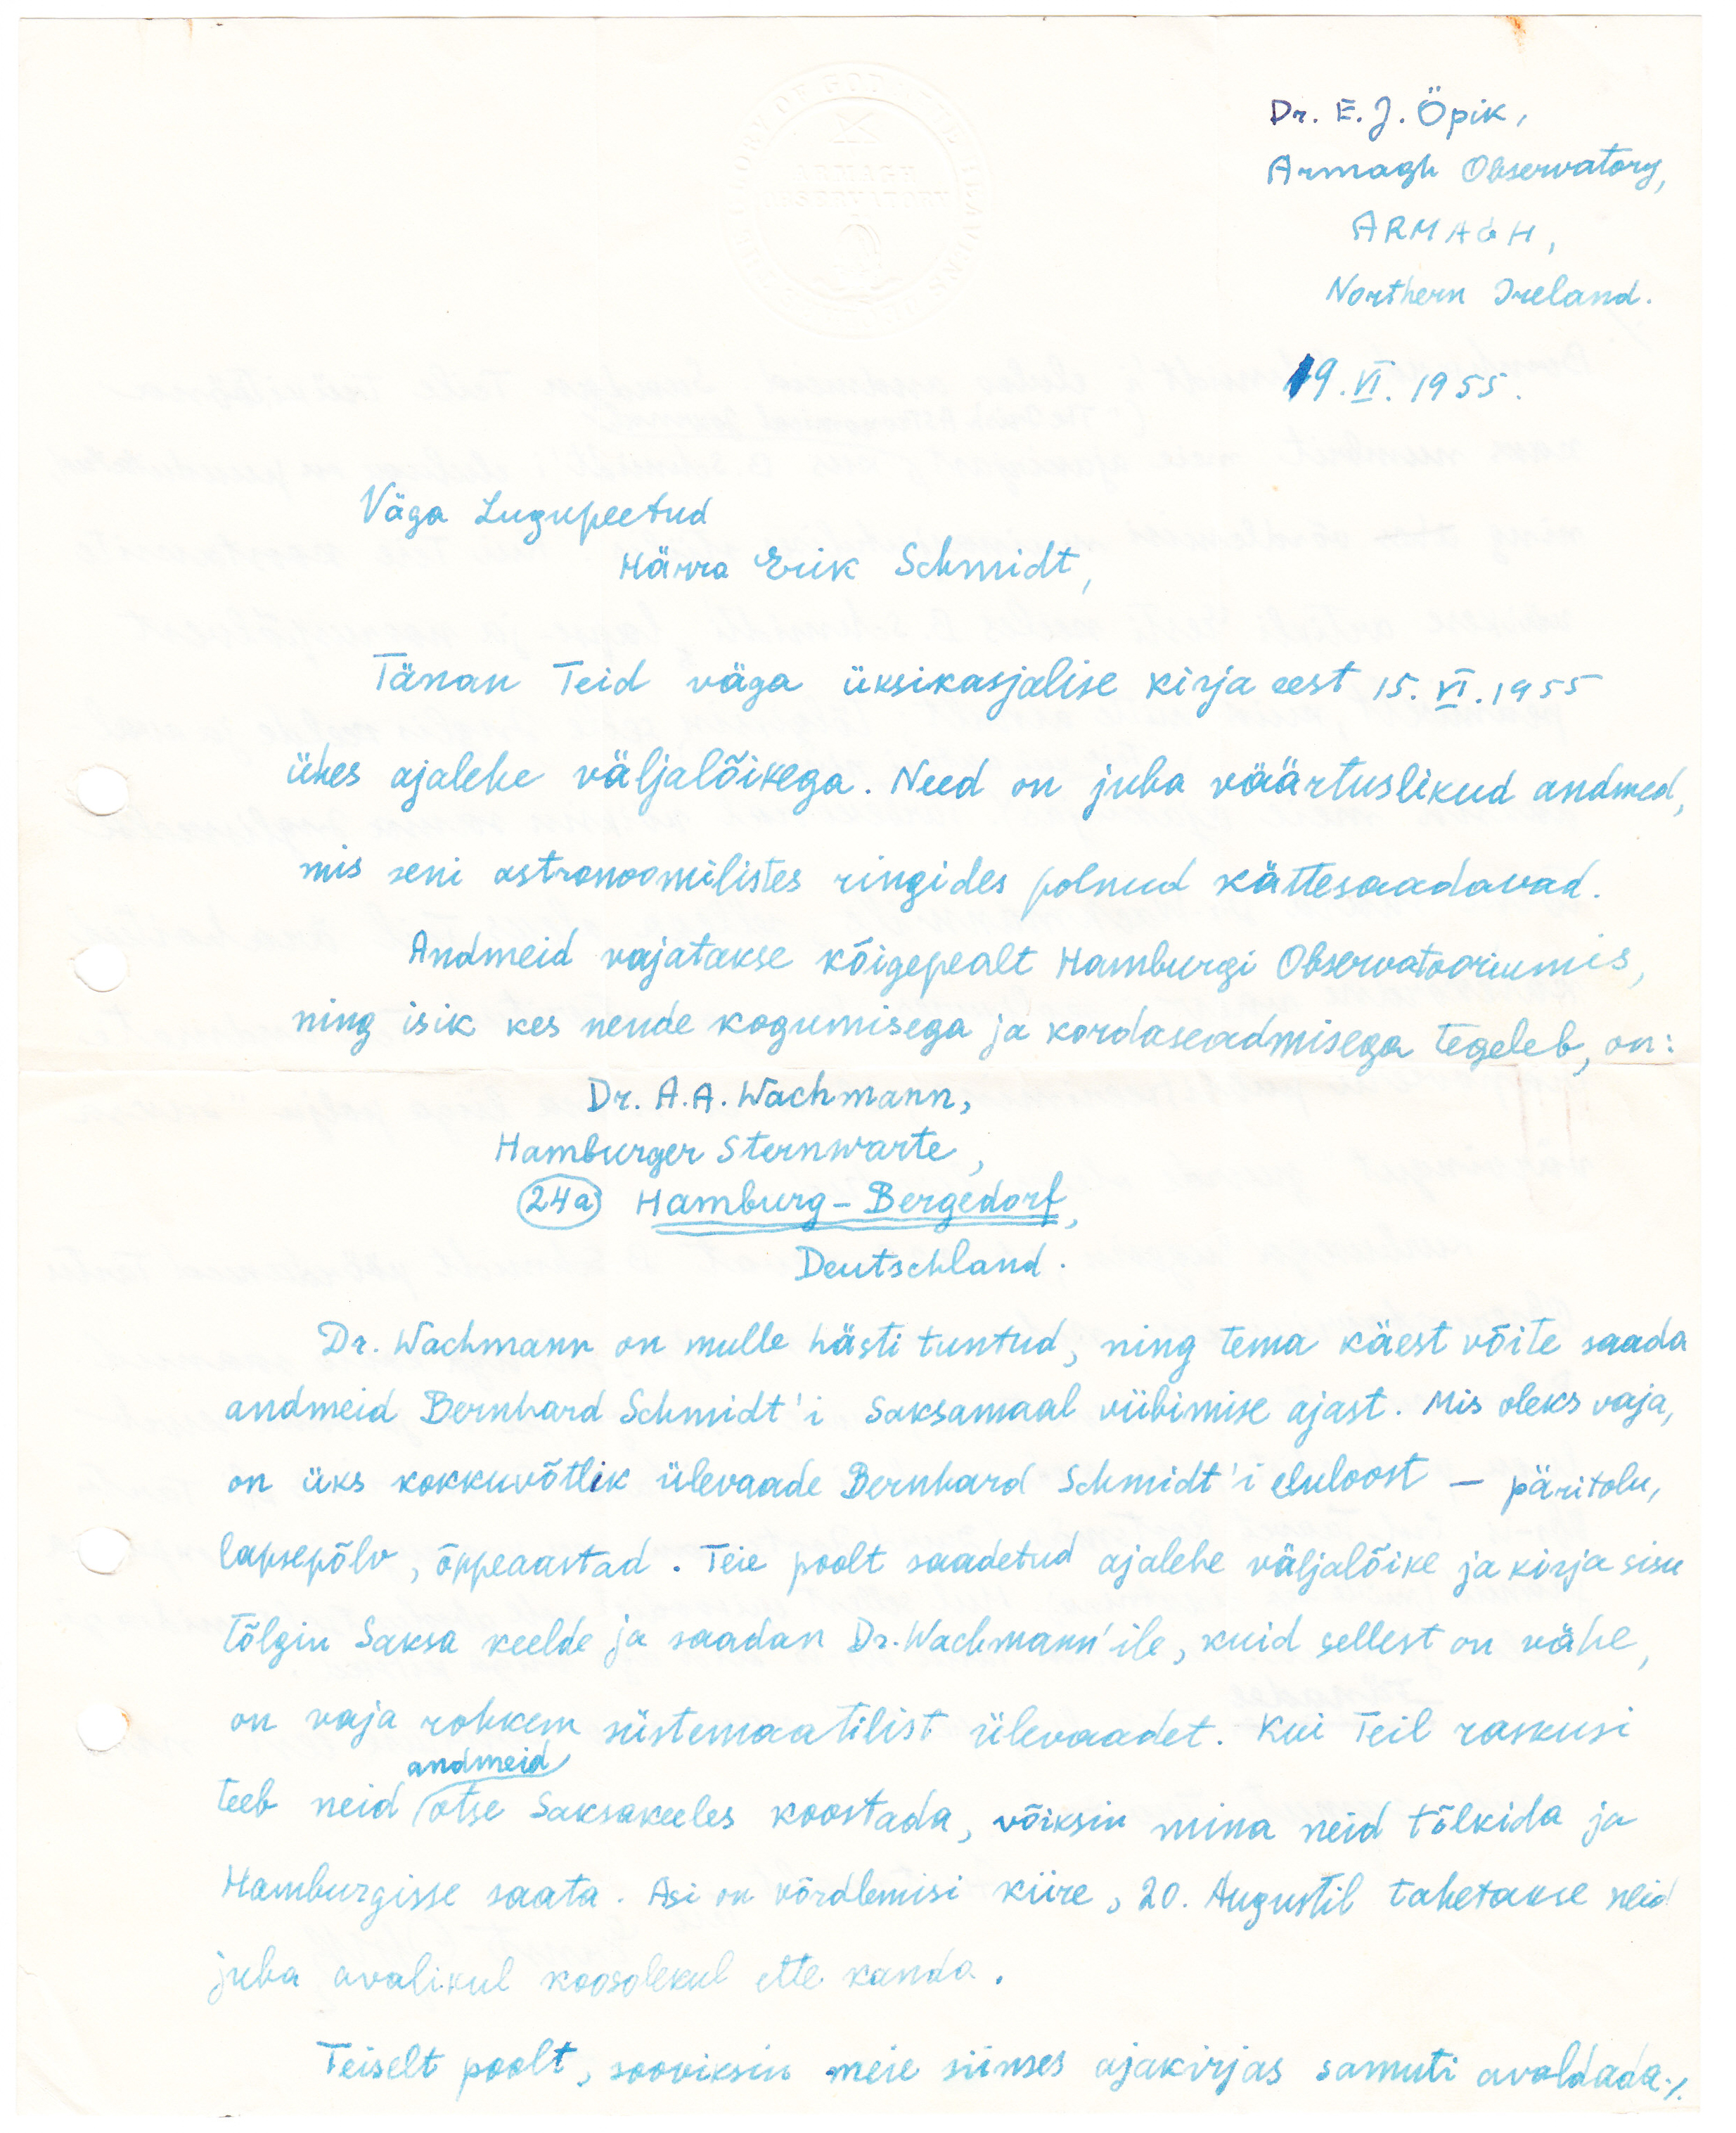 Dr. E. J. Öpik,
Armagh Observatory,
ARMAGH,
Northern Ireland.
19. VI. 1955.
Väga Lugupeetud
Härra Erik Schmidt,
Tänan Teid väga üksikasjalise kirja eest 15. VI. 1955
ühes ajalehe väljalõikega. Need on juba väärtuslikud andmed,
mis seni astronoomilistes ringides polnud kättesaadavad.
Andmeid vajatakse kõigepealt Hamburgi Observatooriumis,
ning isik kes nende kogumisega ja kordaseadmisega tegeleb, on:
Dr. A. A. Wachmann,
Hamburger Sternwarte,
24a Hamburg-Bergedorf,
Deutschland.
Dr. Wachmann on mulle hästi tuntud, ning tema käest võite saada
andmeid Bernhard Schmidt'i Saksamaal viibimise ajast. Mis oleks vaja,
on üks kokkuvõtlik ülevaade Bernhard Schmidt'i eluloost – päritolu,
lapsepõlv, õppeaastad. Teie poolt saadetud ajalehe väljalõike ja kirja sisu
tõlgin Saksa keelde ja saadan Dr. Wachmann'ile, kuid sellest on vähe,
on vaja rohkem süstemaatilist ülevaadet. Kui Teil raskusi
andmeid
teeb neid otse Saksakeeles koostada, võiksin mina neid tõlkida ja
Hamburgisse saata. Asi on võrdlemisi kiire, 20. Augustil tahetakse neid
juba avalikul koosolekul ette kanda.
Teiselt poolt, sooviksin meie siinses ajakirjas samuti avaldada ./.